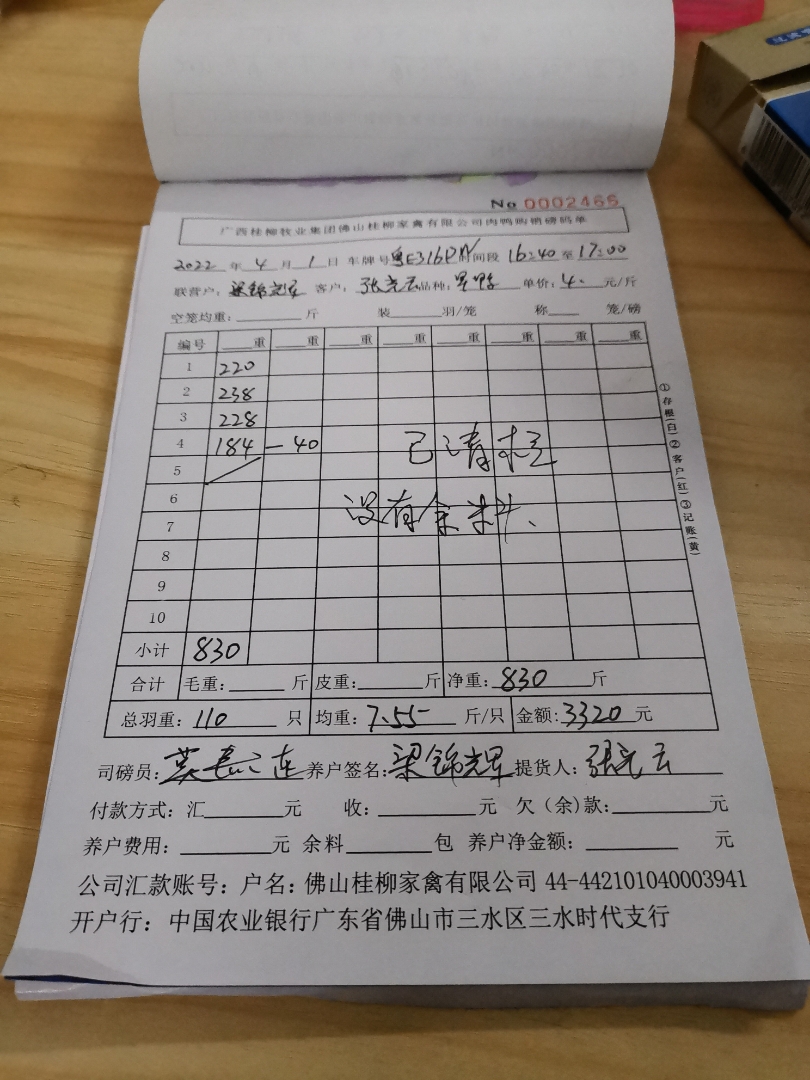 No 0002466
广西桂柳牧业集团佛山桂柳家禽有限公司肉鸭购销磅码单
2022 年 4 月 1 日 车牌号 粤E316PN 时间段 16:40 至 17:00
联营户: 梁锦光军 客户: 张光云 品种: 单价: 4. 元/斤
空笼均重: 斤 装 羽/笼 称 笼/磅
编号 重 重 重 重 重 重 重 重
1 220
2 238
3 228
4 184 - 40 已清栏
5
6 没有余料、
7
8
9
10
小计 830
合计 毛重: 斤 皮重: 斤 净重: 830 斤
总羽重: 110 只 均重: 7.55 斤/只 金额: 3320 元
司磅员: 养户签名: 梁锦光军 提货人: 张光云
付款方式: 汇 元 收: 元 欠(余)款: 元
养户费用: 元 余料 包 养户净金额: 元
公司汇款账号: 户名: 佛山桂柳家禽有限公司 44-442101040003941
开户行: 中国农业银行广东省佛山市三水区三水时代支行
①存根(白)②客户(红)③记账(黄)